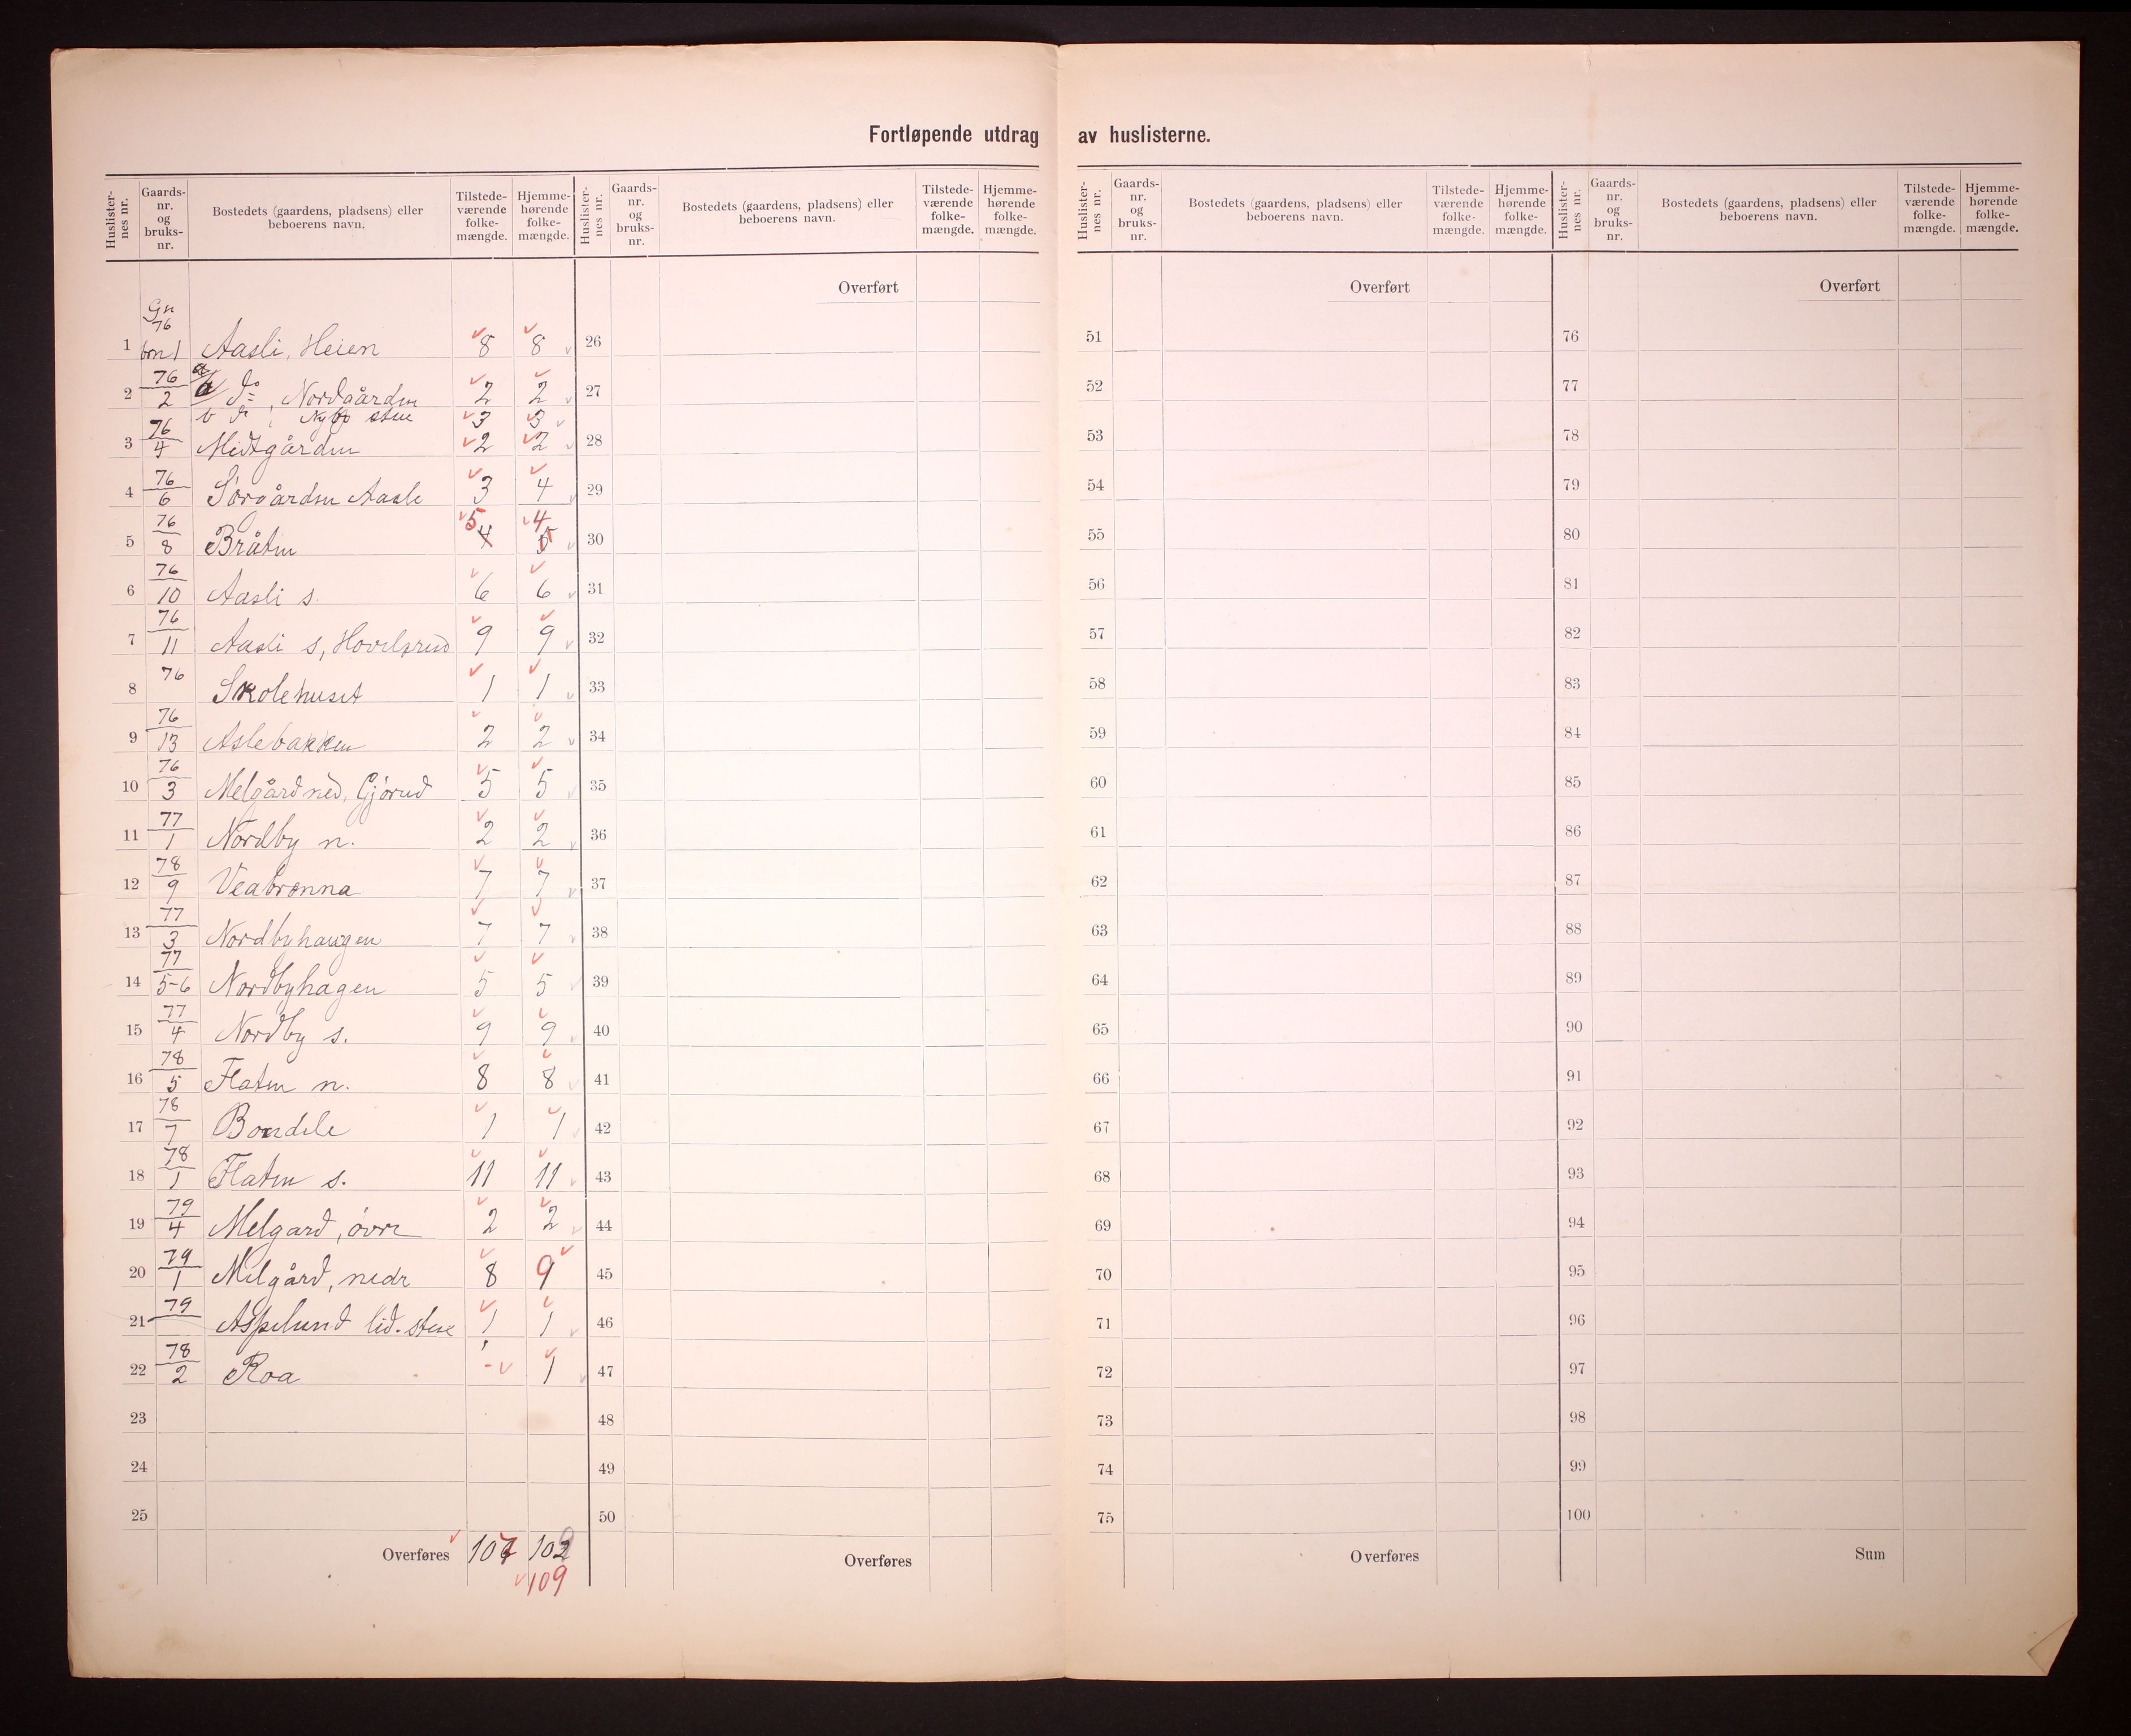 Fortløpende utdrag av huslisterne.
Huslisternes nr. Gaards-nr. og bruks-nr. Bostedets (gaardens, pladsens) eller beboerens navn. Tilstedeværende folkemængde. Hjemmehørende folkemængde.
Huslisternes nr. Gaards-nr. og bruks-nr. Bostedets (gaardens, pladsens) eller beboerens navn. Tilstedeværende folkemængde. Hjemmehørende folkemængde.
Huslisternes nr. Gaards-nr. og bruks-nr. Bostedets (gaardens, pladsens) eller beboerens navn. Tilstedeværende folkemængde. Hjemmehørende folkemængde.
Huslisternes nr. Gaards-nr. og bruks-nr. Bostedets (gaardens, pladsens) eller beboerens navn. Tilstedeværende folkemængde. Hjemmehørende folkemængde.
Gn 76
1 brn 1 Aasli, Heien 8 8
2 76/2 a do, Nordgården 2 2
b do, stue 3 3
3 76/4 Midtgården 2 2
4 76/6 Sørgården Aasle 3 4
5 76/8 Bråten 4 5 5 4
6 76/10 Aasli s. 6 6
7 76/11 Aasli s, Hovelsrud 9 9
8 76 Skolehuset 1 1
9 76/13 Aslebakken 2 2
10 76/3 Melgård ned, Gjørud 5 5
11 77/1 Nordby n. 2 2
12 78/9 Veabrønna 7 7
13 77/3 Nordbyhaugen 7 7
14 77/5-6 Nordbyhagen 5 5
15 77/4 Nordby s. 9 9
16 78/5 Flaten n. 8 8
17 78/7 Bondele 1 1
18 78/1 Flaten s. 11 11
19 79/4 Melgard, övre 2 2
20 79/1 Melgård, nedre 8 9
21 79 Aspelund lid. stue 1 1
22 78/2 Roa - 1
23
24
25
Overføres 107 102
109
Overført
26
27
28
29
30
31
32
33
34
35
36
37
38
39
40
41
42
43
44
45
46
47
48
49
50
Overføres
Overført
51
52
53
54
55
56
57
58
59
60
61
62
63
64
65
66
67
68
69
70
71
72
73
74
75
Overføres
Overført
76
77
78
79
80
81
82
83
84
85
86
87
88
89
90
91
92
93
94
95
96
97
98
99
100
Sum